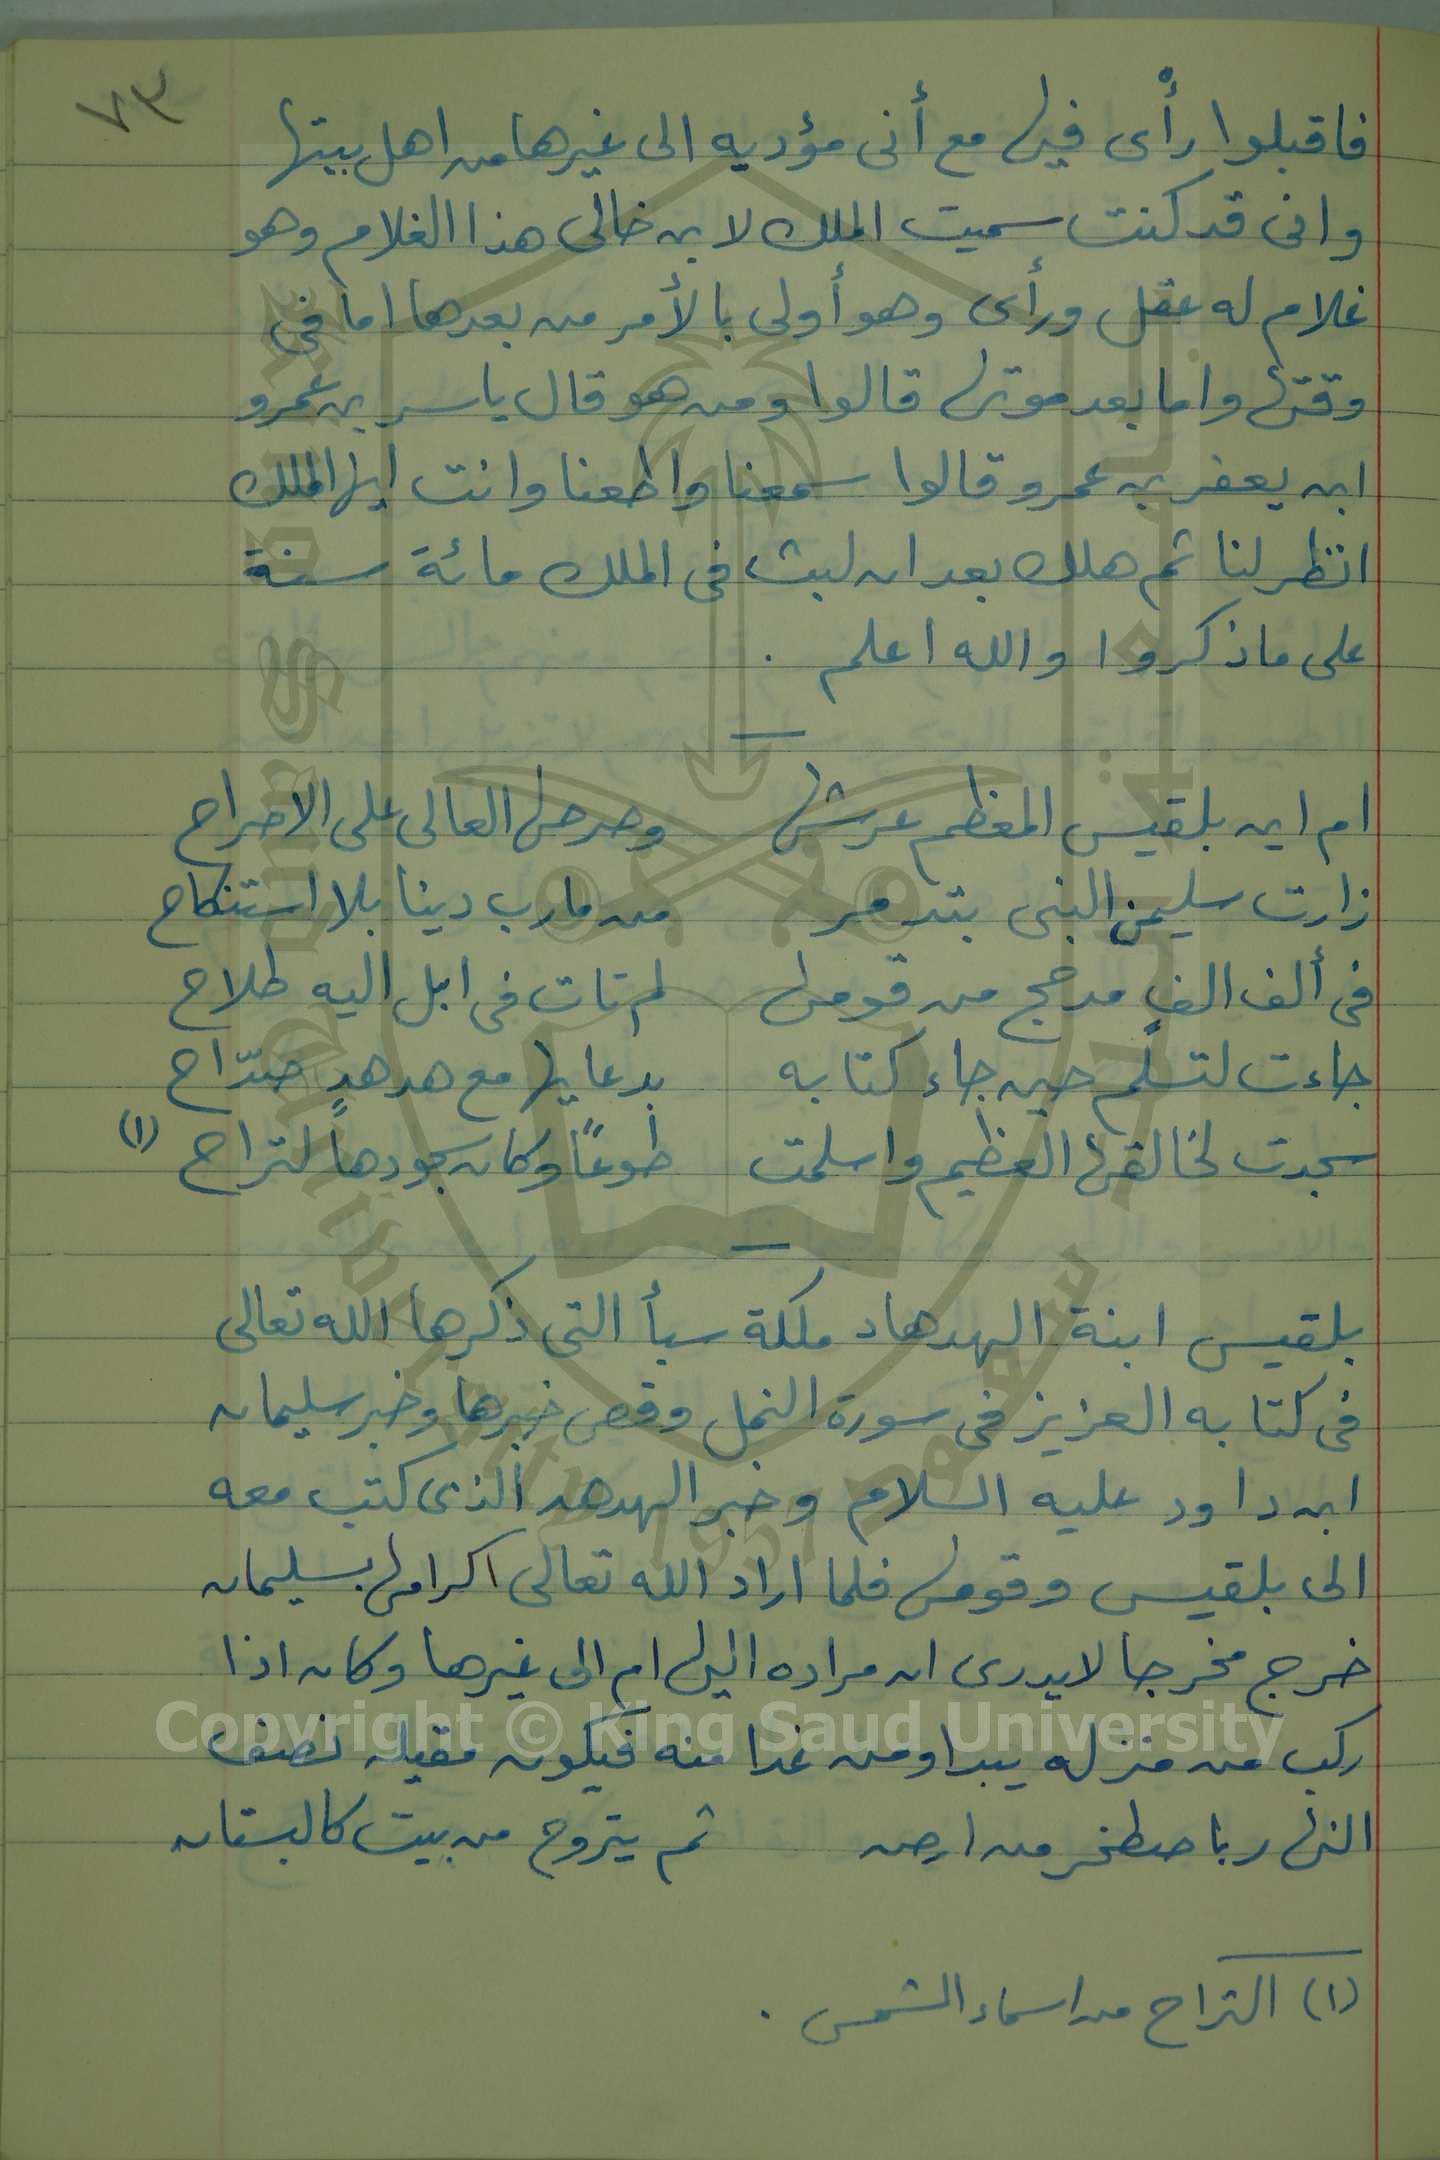 ٧٣
فاقبلوا رأْى فيها مع أنى مؤديه الى غيرها من اهل بيتها
وانى قد كنت سميت الملك لابن خالى هذا الغلام وهو
غلام له عقل ورأى وهو أولى بالأمر من بعدها اما فى
وقتها واما بعد موتها قالوا ومن هو قال ياسر بن عمرو
ابن يعفر بن عمرو قالوا سمعنا واطعنا وانت ايها الملك
انظر لنا ثم هلك بعد ان لبث فى الملك مائة سنة
على ما ذكروا والله اعلم .
ام اين بلقيس المعظم عرشها وصرحها العالى على الاصراح
زارت سليمن النبى بتدمر من مارب دينا بلا استنكاح
فى ألف الفٍ مدجج من قومها لم تات فى ابل اليه طلاح
جاءت لتسلم حين جاء كتابه بدعايها مع هدهدٍ صدّاح
سجدت لخالقها العظيم واسلمت طوعاً وكان سجودها لتراح (١)
بلقيس ابنة الهدهاد ملكة سبأ التى ذكرها الله تعالى
فى كتابه العزيز فى سورة النمل وقص خبرها وخبر سليمان
ابن داود عليه السلام وخبر الهدهد الذى كتب معه
الى بلقيس وقومها فلما اراد الله تعالى اكرامها بسليمان
خرج مخرجا لا يدرى ان مراده اليها ام الى غيرها وكان اذا
ركب من منزله يبدا ومن غدا منه فيكون مقيله نصف
النهار باصطخر من ارض ثم يتروح من بيت كالبستان
(١) التراح من اسماء الشمس .
Copyright © King Saud University
جامعة الملك سعود
King Saud University 1957